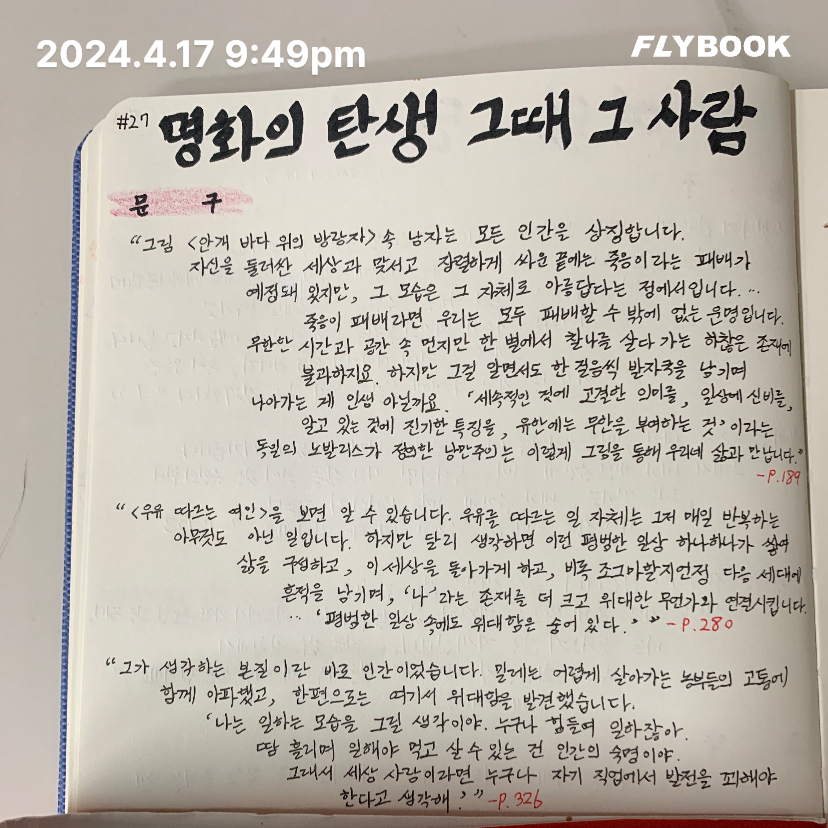 2024.4.17 9:49pm
FLYBOOK
#27 명화의 탄생 그때 그 사람
문 구
"그림 <안개 바다 위의 방랑자> 속 남자는 모든 인간을 상징합니다.
자신을 둘러싼 세상과 맞서고 장렬하게 싸운 끝에는 죽음이라는 패배가
예정돼 있지만, 그 모습은 그 자체로 아름답다는 점에서입니다. ...
죽음이 패배라면 우리는 모두 패배할 수밖에 없는 운명입니다.
무한한 시간과 공간 속 먼지만 한 별에서 찰나를 살다 가는 하찮은 존재에
불과하지요. 하지만 그걸 알면서도 한 걸음씩 발자국을 남기며
나아가는 게 인생 아닐까요. '세속적인 것에 고결한 의미를, 일상에 신비를,
알고 있는 것에 진기한 특징을, 유한에는 무한을 부여하는 것' 이라는
독일의 노발리스가 정의한 낭만주의는 이렇게 그림을 통해 우리네 삶과 만납니다."
-P.189
"<우유 따르는 여인>을 보면 알 수 있습니다. 우유를 따르는 일 자체는 그저 매일 반복하는
아무것도 아닌 일입니다. 하지만 달리 생각하면 이런 평범한 일상 하나하나가 쌓여
삶을 구성하고, 이 세상을 돌아가게 하고, 비록 조그마할지언정 다음 세대에
흔적을 남기며, '나'라는 존재를 더 크고 위대한 무언가와 연결시킵니다.
... '평범한 일상 속에도 위대함은 숨어 있다.' " -P.280
"그가 생각하는 본질이란 바로 인간이었습니다. 밀레는 어렵게 살아가는 농부들의 고통에
함께 아파했고, 한편으로는 여기서 위대함을 발견했습니다.
'나는 일하는 모습을 그릴 생각이야. 누구나 힘들여 일하잖아.
땀 흘리며 일해야 먹고 살 수 있는 건 인간의 숙명이야.
그래서 세상 사람이라면 누구나 자기 직업에서 발전을 꾀해야
한다고 생각해.' " -P.326